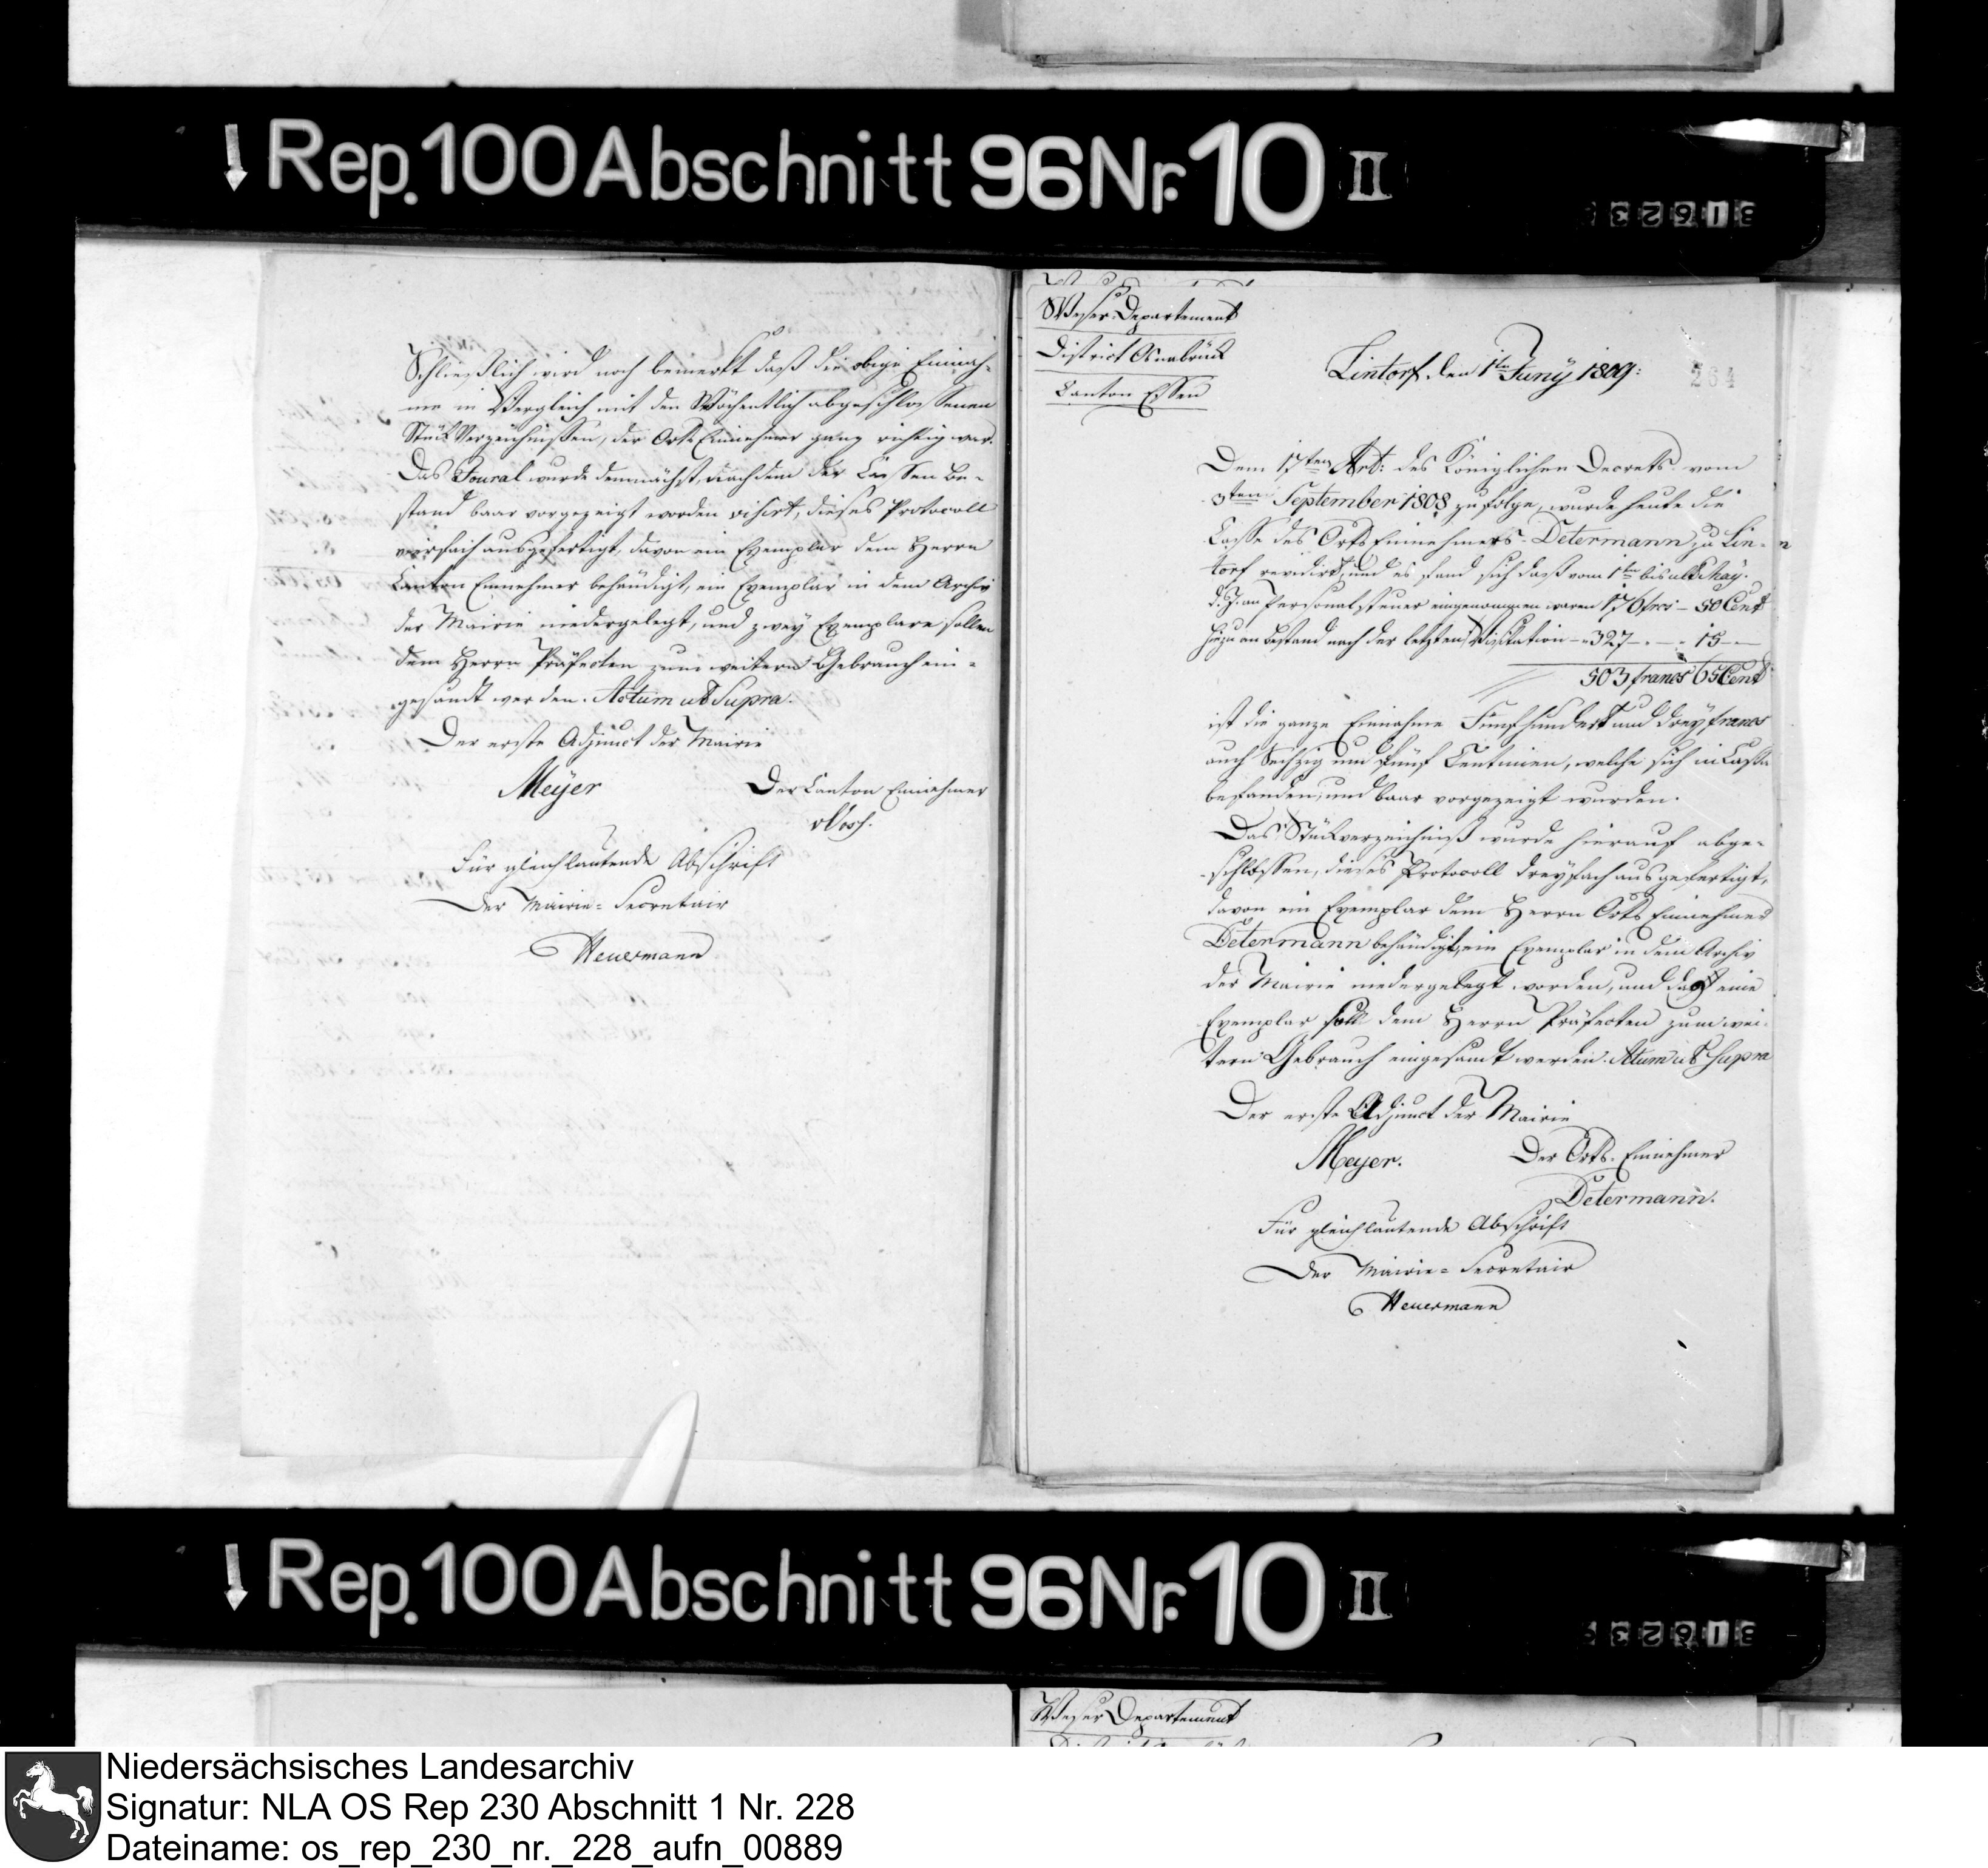 Rep. 100 Abschnitt 96 Nr. 10 II
Schließlich wird noch bemerkt daß die obige Einnah-
me in Vergleich mit den Wöchentlich abgeschlossenen
Stück Verzeichnissen, der Orts Einnehmer ganz richtig war.
Das Joural wurde demnächst, nachdem der Cassen Be-
stand baar vorgezeigt worden visirt, dieses Protocoll
vierfach ausgefertigt, davon ein Exemplar dem Herrn
Canton Einnehmer behändigt, ein Exemplar in dem Archiv
der Mairie niedergelegt, und zwey Exemplare sollen
dem Herrn Präfecten zum weitern Gebrauch ein-
gesandt werden. Actum ut Supra.
Der erste Adjunct der Mairie
Meyer
Der Canton Einnehmer
Für gleichlautende Abschrift
Der Mairie-Secretair
Heuermann
Weser Departement
District Osnabrück
Canton Essen
Lintorf, den 1ten Juny 1809.
264
Dem 17ten Art: des Königlichen Decrets vom
3ten September 1808 zufolge, wurde heute die
Casse des Orts Einnehmers Determann zu Lin-
torf revidirt, und es fand sich daß vom 1ten bis ult May.
d. J. an Personalsteuer eingenommen waren 176 frcs - 50 Cent
hiezu an Bestand nach der letzten Visitation - 327 - 15 -
503 francs 65 Cent
ist die ganze Einnahme Fünfhundert und drey francs
auch Sechzig und fünf Centimen, welche sich in Cassa
befanden, und baar vorgezeigt wurden.
Das Stückverzeichniß wurde hierauf abge-
schlossen, dieses Protocoll dreyfach ausgefertigt,
davon ein Exemplar dem Herrn Orts Einnehmer
Determann behändigt, ein Exemplar in dem Archiv
der Mairie niedergelegt worden, und das eine
Exemplar soll dem Herrn Präfecten zum wei-
tern Gebrauch eingesandt werden. Actum ut Supra
Der erste Adjunct der Mairie
Meyer.
Der Orts-Einnehmer
Determann.
Für gleichlautende Abschrift
Der Mairie-Secretair
Heuermann
Rep. 100 Abschnitt 96 Nr. 10 II
Weser Departement
Niedersächsisches Landesarchiv
Signatur: NLA OS Rep 230 Abschnitt 1 Nr. 228
Dateiname: os_rep_230_nr._228_aufn_00889